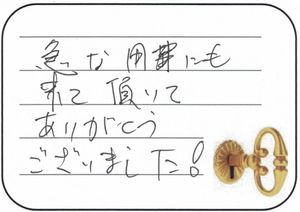 急な用事にも
来て頂いて
ありがとう
ございました!